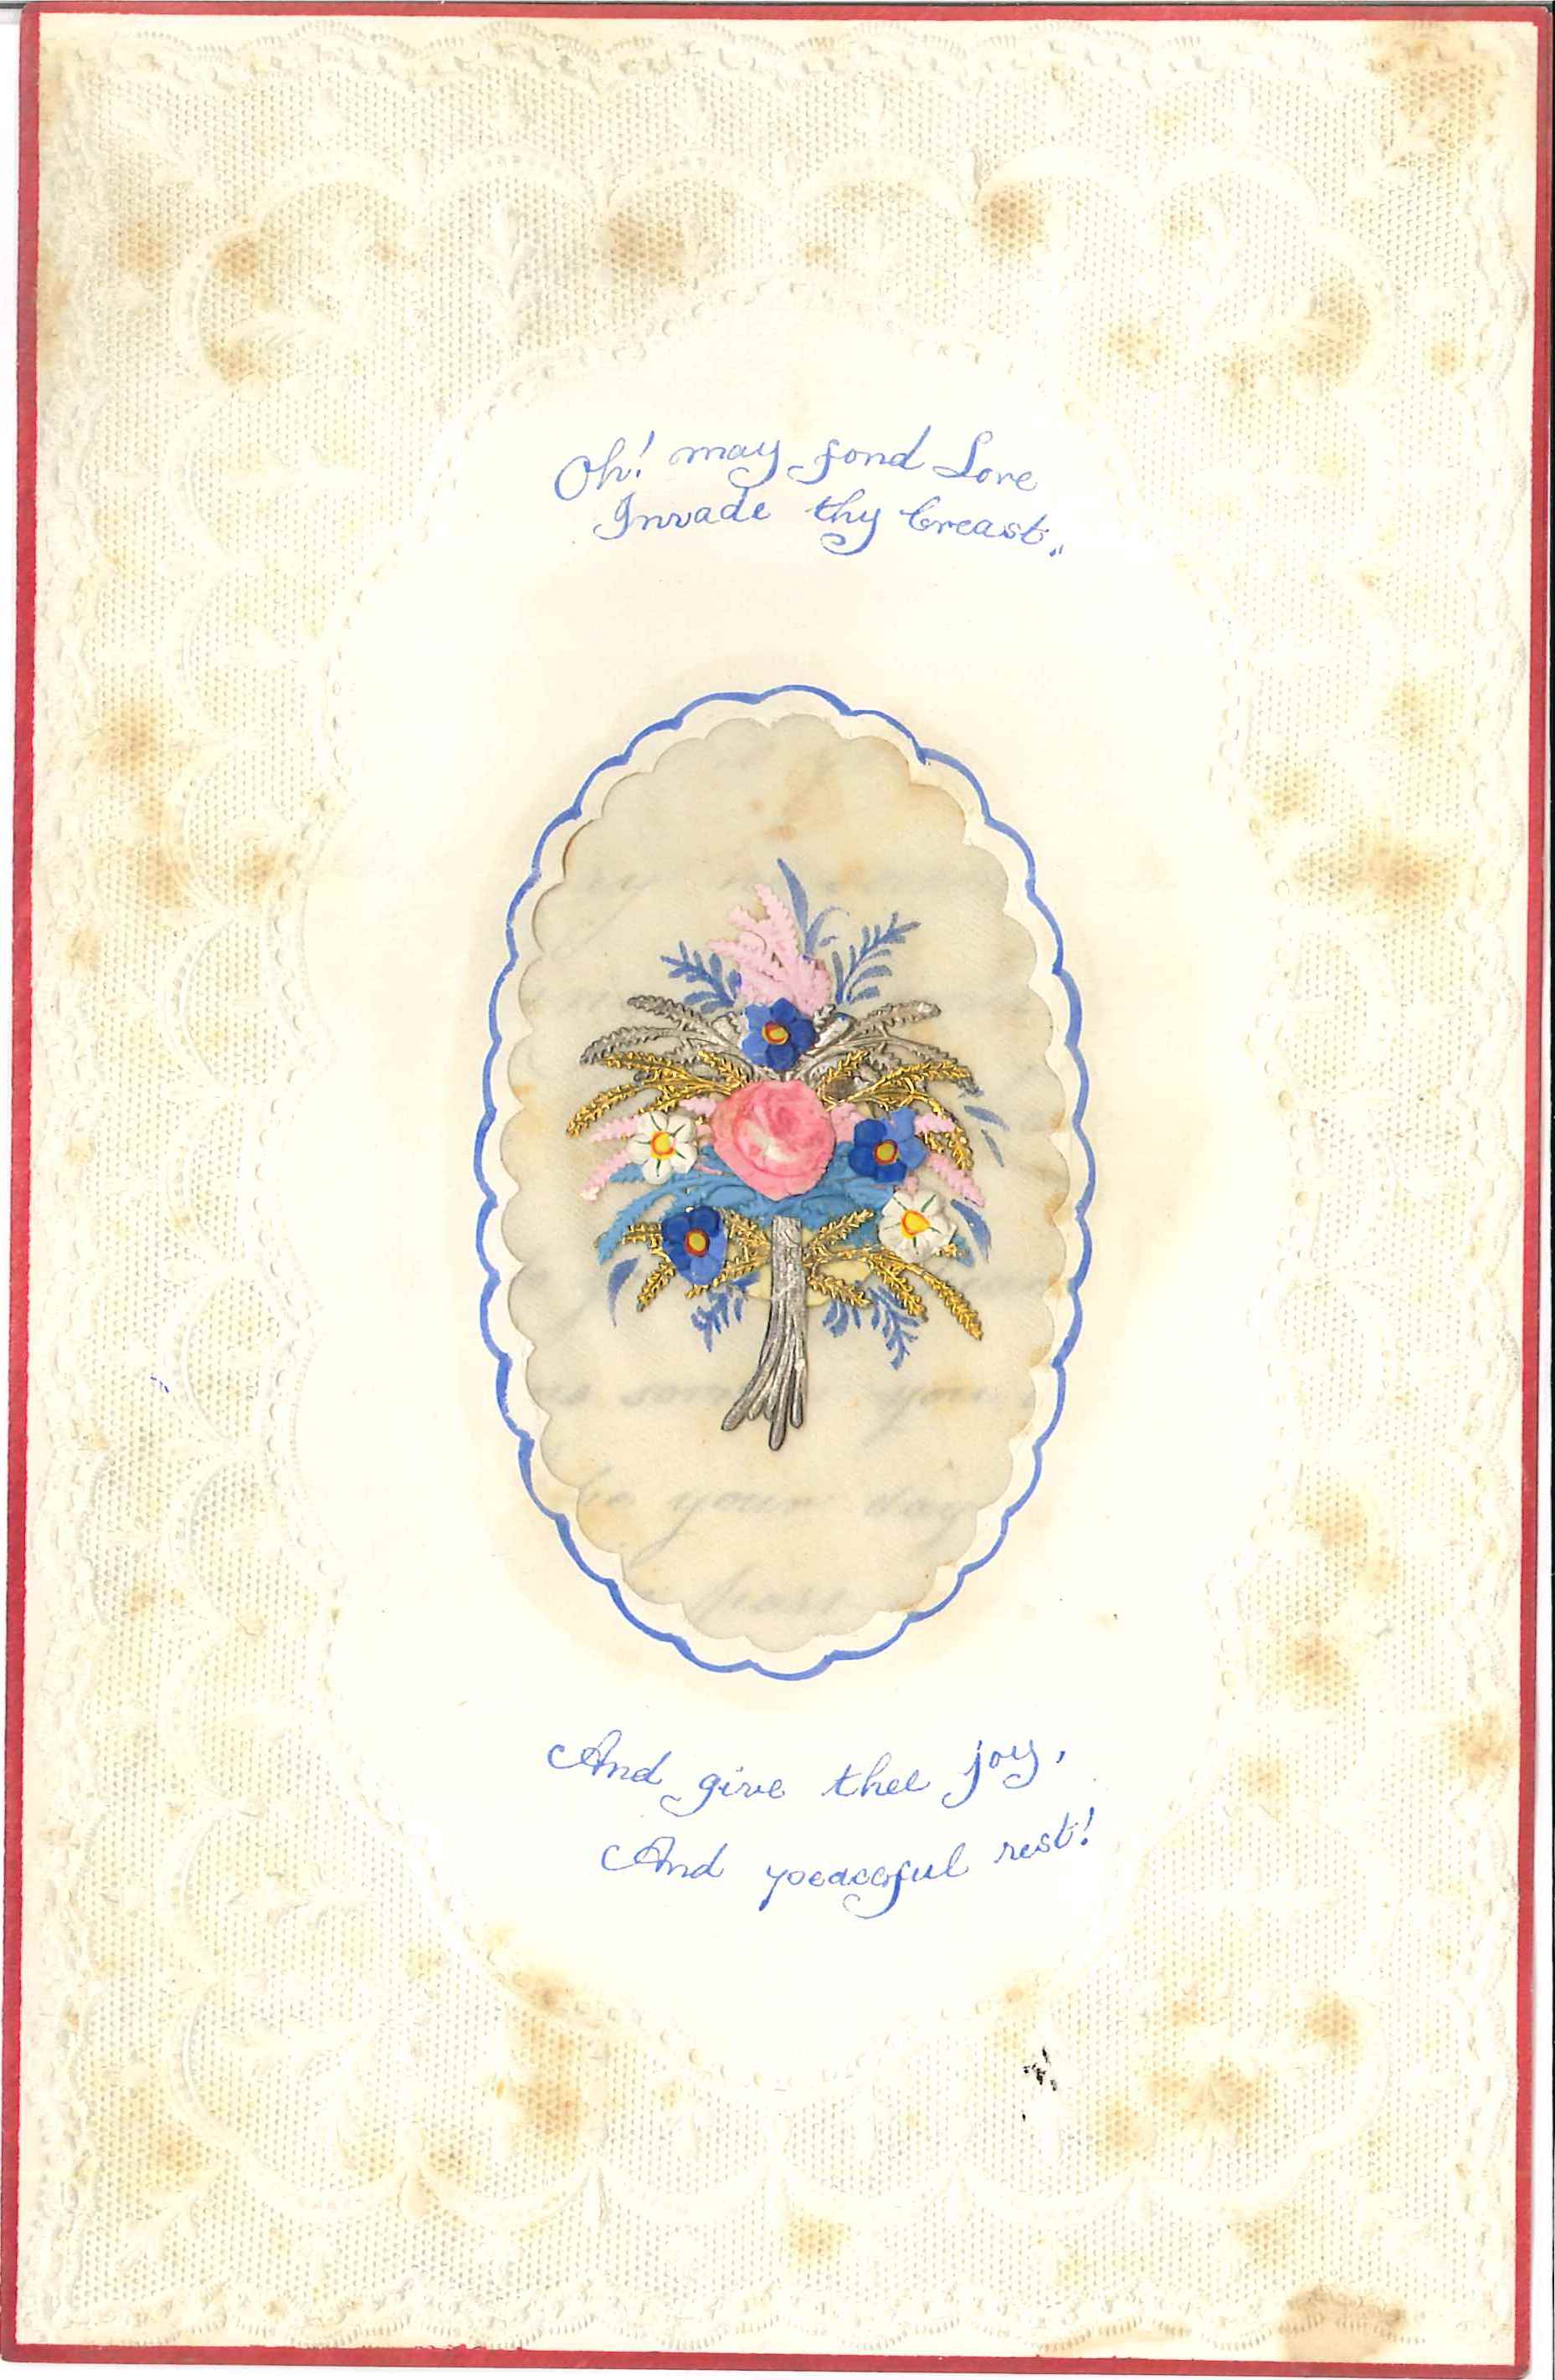 Oh! may fond Love
Invade thy breast,
your
be your day
And give thee joy,
And peaceful rest!